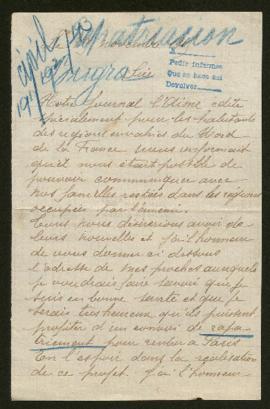 Rapatriement
Petit informe
Que se hace asi
Devolver
Notre Journal l'Edime édité
spécialement pour les habitants
des régions envahies du Nord
de la France nous informant
qu'il nous était possible de
pouvoir communiquer avec
nos familles restés dans les régions
occupées par l'ennemi.
nous désirerions avoir de
leurs nouvelles et j'ai l'honneur
de vous donner ci dessous
l'adresse de mes proches auxquels
je voudrais faire savoir que je
suis en bonne santé et que je
serais très heureux qu'ils puissent
profiter d'un convoi de rapa-
triement pour rentrer à Paris
En l'espoir dans la réalisation
de ce projet. J'ai l'honneur